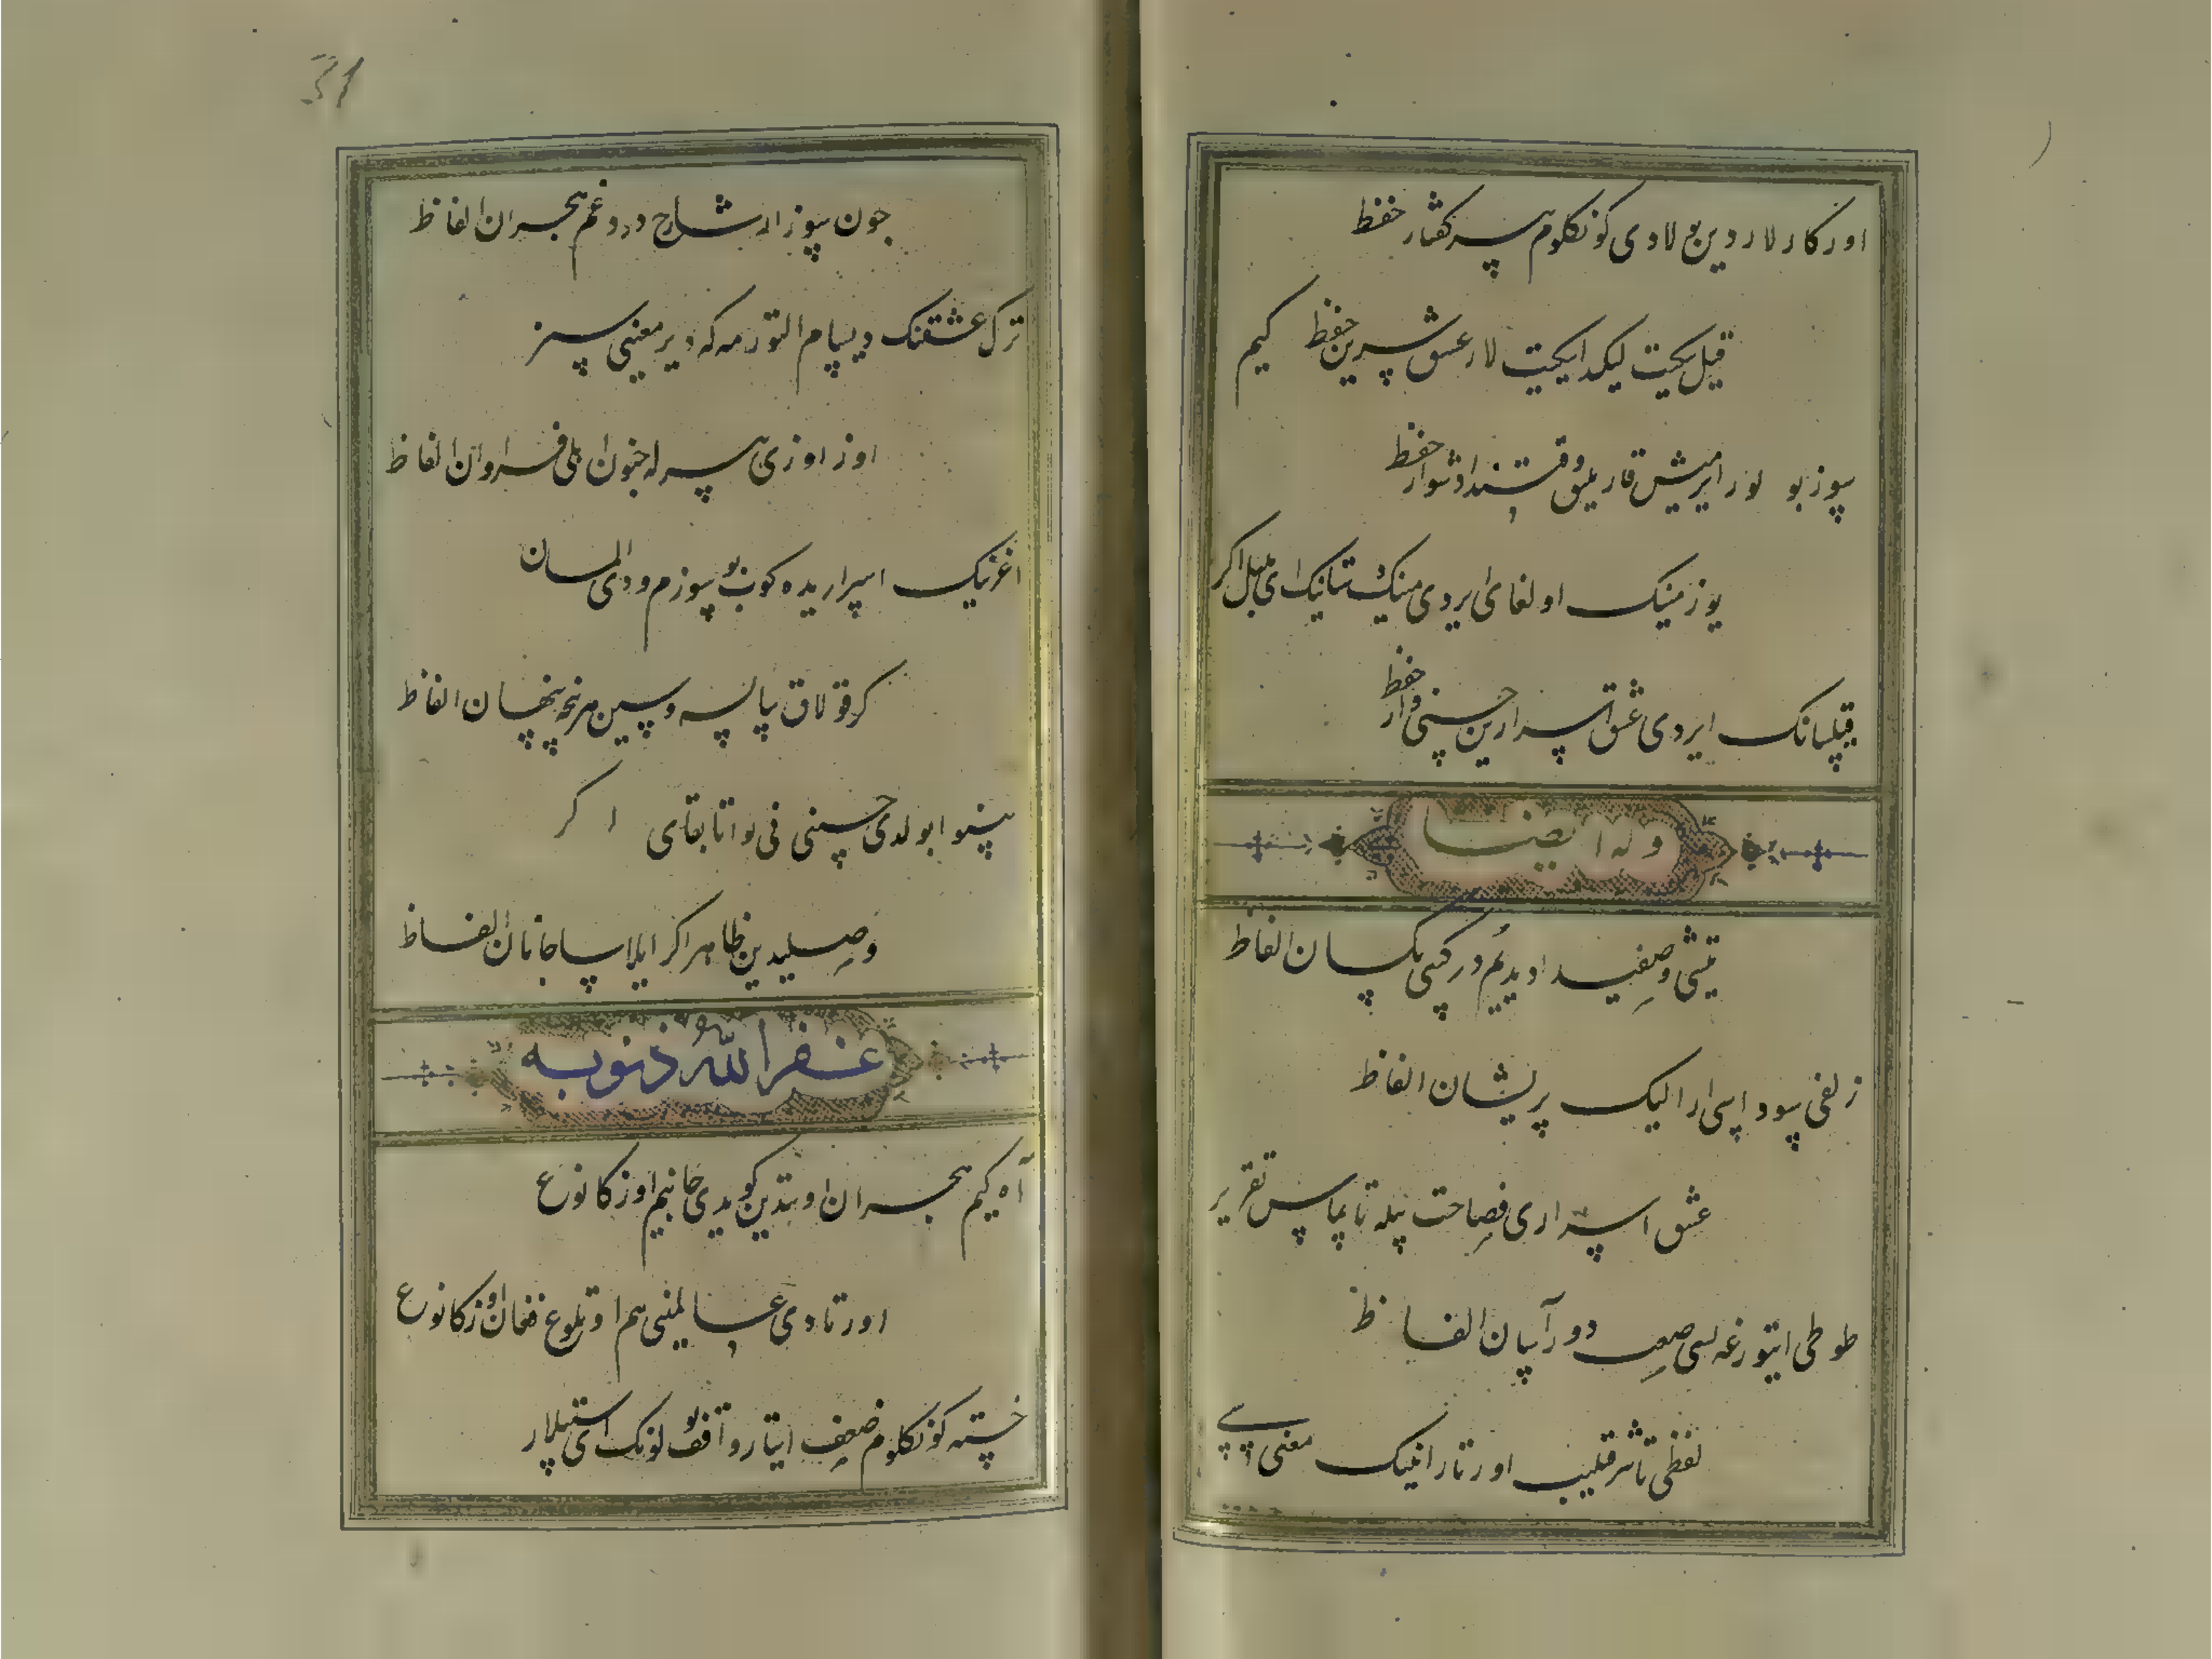 اورکارلاردین بولادی کونکلوم سر کفتار حفظ
قیل یکیت لیکدا ایکیت لار عشق شرین حفظ کیم
سوز بو لور ایرمیش قاریلیق وقتیندا دشوار حفظ
یوز مینک اولغای ایردی مینک داستانیک ای بیل اکر
قیلسانک ایردی عشق اسرارین حسینی وار حفظ
وله ایضا
تیشی وصفیدا دیدیم در کبی یکسان الفاظ
زلفی سوداسی ارا لیک پریشان الفاظ
عشق اسراری فصاحت بیله تاپماس تقریر
طوطی ایتورغه لسی صعب دور آسان الفاظ
لفظی تاثر قلیب اورتار انینک معنی سی
جون سوز ار شارح درد و غم هجران الفاظ
ترک عشقنک دیسام التورمه که دیر معنی سیز
اوز اوزی بیرله جنون ایلی فراوان الفاظ
اغزنیک اسراریده کوب بو سوزم ودی المسان
کر قولاق سالسه وسین هر نجه پنهان الفاظ
بینوا بولدی حسینی نی نوا تابقای اکر
وصلیدین ظاهر اکر ایلاسا جانان الفاظ
غفر الله ذنوبه
آه کیم هجران اوتیدین کویدی جانیم اوزکا نوع
اورتادی عالمنی هم اوتلوغ فغان اوزکا نوع
خسته کونکلوم ضعف ایتار واقف بولونک ای ایستیلار
31